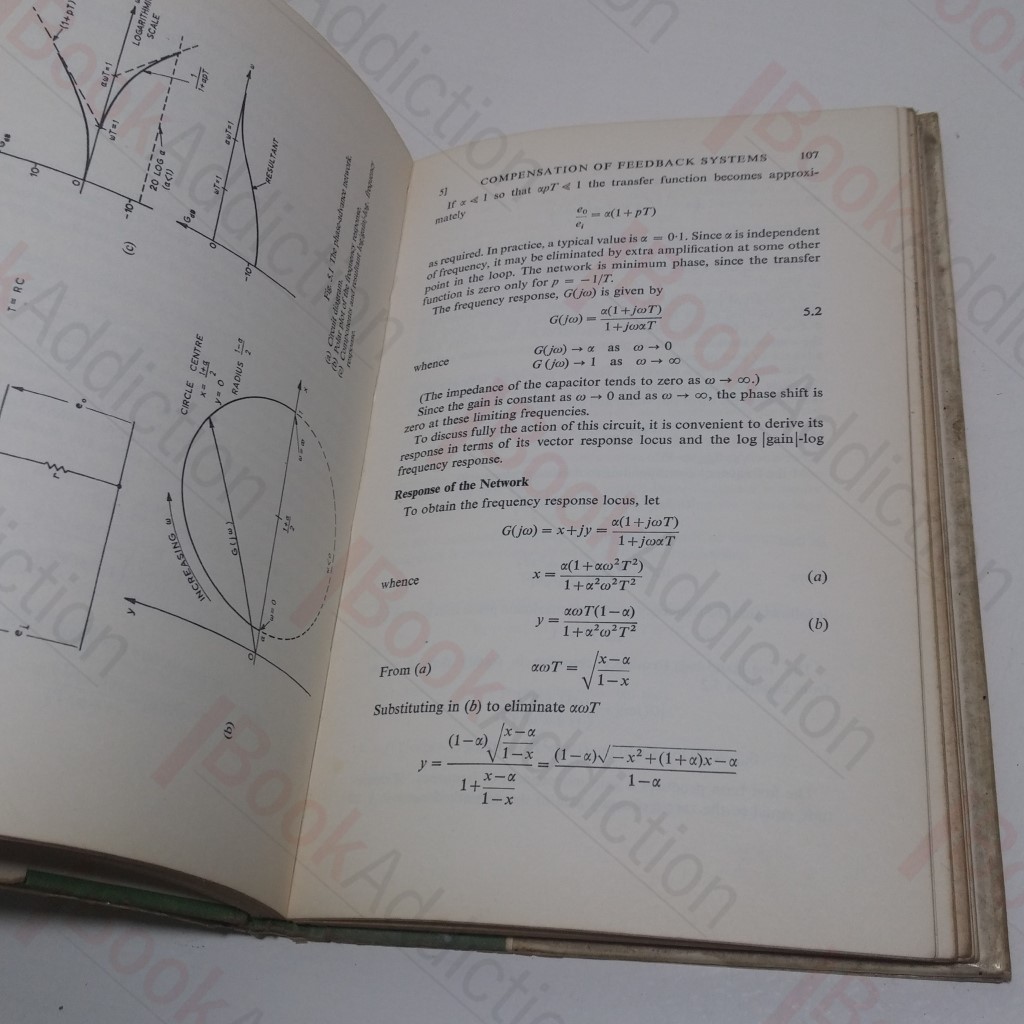 T = RC
e₀
r
eᵢ
(1+pT)
LOGARITHMIC
SCALE
G dB
10
0
-10
ωT=1
αωT=1
20 LOG α
(α<1)
1/(1+αpT)
(c)
G dB
0
-10
ωT=1
αωT=1
RESULTANT
ω
(b)
INCREASING ω
CIRCLE CENTRE
x = (1+α)/2
y = 0
RADIUS (1-α)/2
G(jω)
y
x
0
α
ω=0
(1+α)/2
ω=∞
1
Fig. 5.1 The phase-advance network
(a) Circuit diagram.
(b) Polar plot of the frequency response.
(c) Components and resultant log/gain/-log. frequency
response.
5] COMPENSATION OF FEEDBACK SYSTEMS 107
If α ≪ 1 so that αpT ≪ 1 the transfer function becomes approxi-
mately
e₀/eᵢ = α(1+pT)
as required. In practice, a typical value is α = 0·1. Since α is independent
of frequency, it may be eliminated by extra amplification at some other
point in the loop. The network is minimum phase, since the transfer
function is zero only for p = −1/T.
The frequency response, G(jω) is given by
G(jω) = α(1+jωT)/(1+jωαT) 5.2
whence G(jω) → α as ω → 0
G (jω) → 1 as ω → ∞
(The impedance of the capacitor tends to zero as ω → ∞.)
Since the gain is constant as ω → 0 and as ω → ∞, the phase shift is
zero at these limiting frequencies.
To discuss fully the action of this circuit, it is convenient to derive its
response in terms of its vector response locus and the log |gain|-log
frequency response.
Response of the Network
To obtain the frequency response locus, let
G(jω) = x+jy = α(1+jωT)/(1+jωαT)
whence x = α(1+αω²T²)/(1+α²ω²T²) (a)
y = αωT(1−α)/(1+α²ω²T²) (b)
From (a) αωT = √((x−α)/(1−x))
Substituting in (b) to eliminate αωT
y = (1−α)√((x−α)/(1−x)) / (1+(x−α)/(1−x)) = (1−α)√(−x²+(1+α)x−α) / (1−α)
BookAddiction